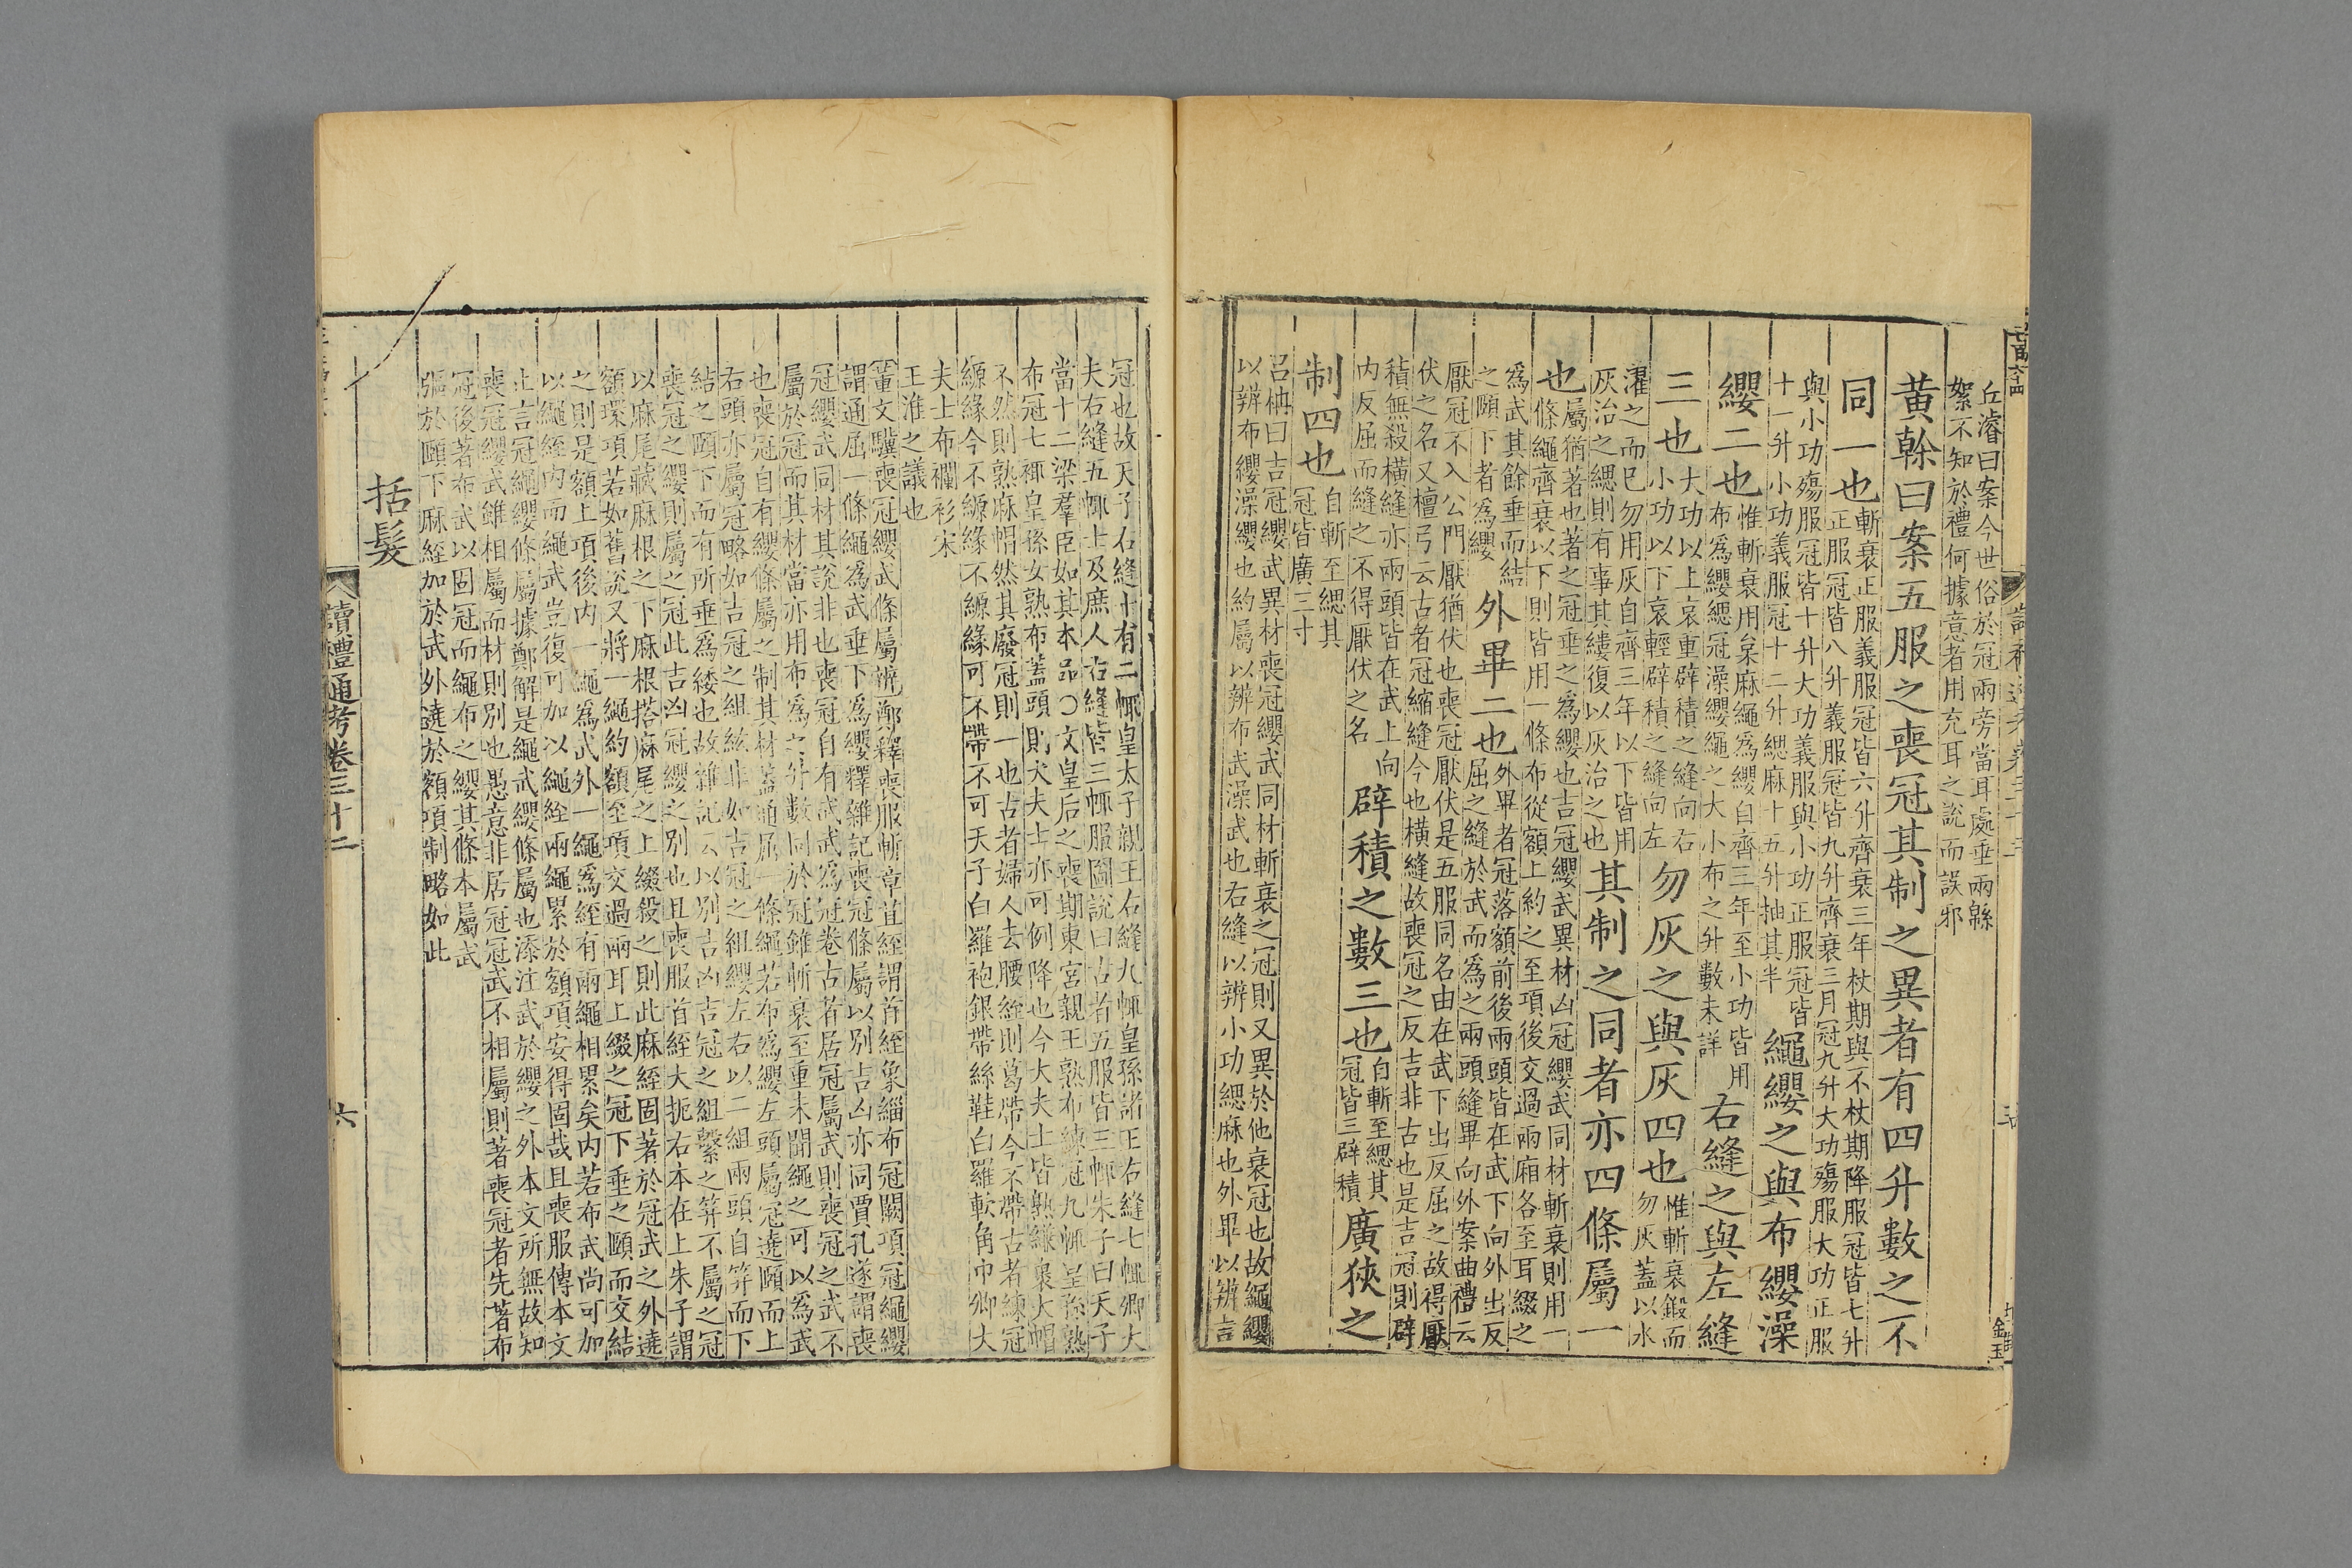 丘濬曰案今世俗於冠兩旁當耳處垂兩緜
絮不知於禮何據意者用充耳之說而誤邪
黃榦曰案五服之喪冠其制之異者有四升數之不
同一也斬衰正服義服冠皆六升齊衰三年杖期與不杖期降服冠皆七升
正服冠皆八升義服冠皆九升齊衰三月冠九升大功殤服大功正服
與小功殤服冠皆十升大功義服與小功正服冠皆
十一升小功義服冠十二升緦麻十五升抽其半
繩纓之與布纓澡
纓二也惟斬衰用枲麻繩爲纓自齊三年至小功皆用
布爲纓緦冠澡纓繩之大小布之升數未詳
右縫之與左縫
三也大功以上哀重辟積之縫向右
小功以下哀輕辟積之縫向左
勿灰之與灰四也惟斬衰鍛而
勿灰蓋以水
濯之而已勿用灰自齊三年以下皆用
灰治之緦則有事其縷復以灰治之也
其制之同者亦四條屬一
也屬猶著也著之冠垂之爲纓也吉冠纓武異材凶冠纓武同材斬衰則用一
條繩齊衰以下則皆用一條布從額上約之至項後交過兩廂各至耳綴之
爲武其餘垂而結
之頤下者爲纓
外畢二也外畢者冠落額前後兩頭皆在武下向外出反
屈之縫於武而爲之兩頭縫畢向外案曲禮云
厭冠不入公門厭猶伏也喪冠厭伏是五服同名由在武下出反屈之故得厭
伏之名又檀弓云古者冠縮縫今也橫縫故喪冠之反吉非古也是吉冠則辟
積無殺橫縫亦兩頭皆在武上向
内反屈而縫之不得厭伏之名
辟積之數三也自斬至緦其
冠皆三辟積
廣狹之
制四也自斬至緦其
冠皆廣三寸
呂柟曰吉冠纓武異材喪冠纓武同材斬衰之冠則又異於他衰冠也故繩纓
以辨布纓澡纓也約屬以辨布武澡武也右縫以辨小功緦麻也外畢以辨吉
冠也故天子右縫十有二㡇皇太子親王右縫九㡇皇孫諸王右縫七㡇卿大
夫右縫五㡇士及庶人右縫皆三㡇服圖說曰古者五服皆三㡇朱子曰天子
當十二梁羣臣如其本品○文皇后之喪期東宮親王熟布練冠九㡇皇孫熟
布冠七㡇皇孫女熟布蓋頭則大夫士亦可例降也今大夫士皆熟縑裹大帽
不然則熟麻帽然其廢冠則一也古者婦人去腰絰則葛帶今不帶古者練冠
縓緣今不縓緣不縓緣可不帶不可天子白羅袍銀帶絲鞋白羅軟角巾卿大
夫士布襴衫宋
王淮之議也
董文驥喪冠纓武條屬辨鄭釋喪服斬章苴絰謂首絰象緇布冠闕項冠繩纓
謂通屈一條繩爲武垂下爲纓釋雜記喪冠條屬以別吉凶亦同賈孔遂謂喪
冠纓武同材其說非也喪冠自有武武爲冠卷古者居冠屬武則喪冠之武不
屬於冠而其材當亦用布爲之升數同於冠雖斬衰至重未聞繩之可以爲武
也喪冠自有纓條屬之制其材蓋通屈一條繩若布爲纓左頭屬冠遶頤而上
右頭亦屬冠略如古冠之組紘非如古冠之組纓左右以二組兩頭自笄而下
結之頤下而有所垂爲緌也故雜記云以別吉凶吉冠之組繫之笄不屬之冠
喪冠之纓則屬之冠此吉凶冠纓之別也且喪服首絰大扼右本在上朱子謂
以麻尾藏麻根之下麻根搭麻尾之上綴殺之則此麻絰固著於冠武之外遶
額環項若如舊說又將一繩約額至項交過兩耳上綴之冠下垂之頤而交結
之則是額上項後内一繩爲武外一繩爲絰有兩繩相累矣内若布武尚可加
以繩絰内而繩武豈復可加以繩絰兩繩累於額項安得固哉且喪服傳本文
止言冠繩纓條屬據鄭解是繩武纓條屬也添注武於纓之外本文所無故知
喪冠纓武雖相屬而材則別也愚意非居冠冠武不相屬則著喪冠者先著布
冠後著布武以固冠而繩布之纓其條本屬武
彄於頤下麻絰加於武外遶於額項制略如此
括髮
讀禮通考卷三十二
六